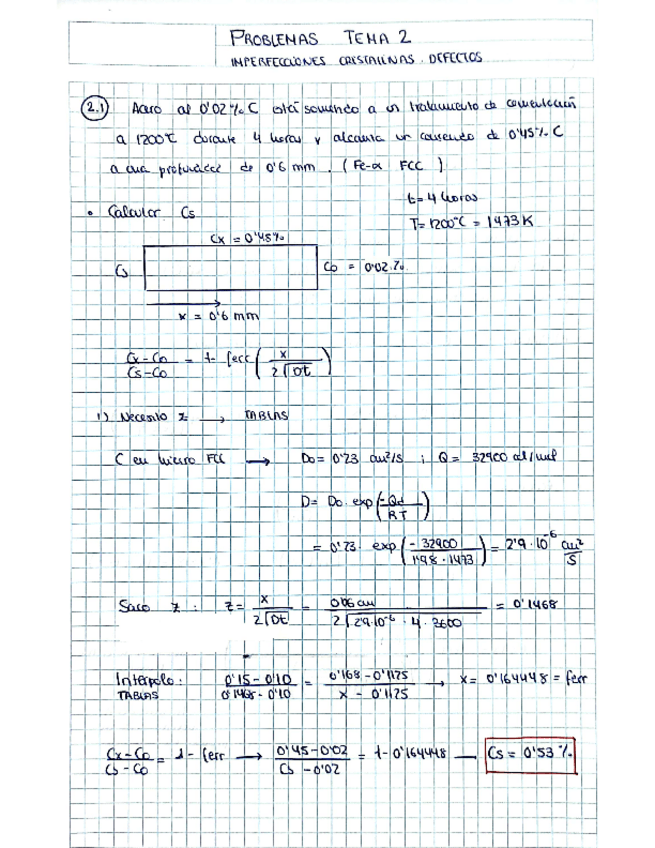 PROBLEMAS TEMA 2
IMPERFECCIONES CRISTALINAS. DEFECTOS
2.1 Acero al 0'02 % C está sometido a un tratamiento de cementación
a 1200°C durante 4 horas y alcanza un contenido de 0'45% C
a una profundidad de 0'6 mm. (Fe-α FCC)
• Calcular Cs
t = 4 horas
T = 1200°C = 1473 K
Cx = 0'45%
Cs
C0 = 0'02 %
x = 0'6 mm
Cx-C0 / Cs-C0 = 1- ferr ( x / 2√Dt )
1) Necesito z → TABLAS
C en hierro FCC → D0 = 0'23 cm²/s ; Q = 32900 cal/mol
D = D0 · exp ( -Qd / RT )
= 0'23 · exp ( -32900 / 1'98 · 1473 ) = 2'9 · 10⁻⁶ cm²/s
Saco z : z = x / 2√Dt = 0'06 cm / 2√2'9·10⁻⁶ · 4 · 3600 = 0'1468
Interpolo: TABLAS 0'15 - 0'10 / 0'1468 - 0'10 = 0'168 - 0'1125 / x - 0'1125 → x = 0'164448 = ferr
Cx-C0 / Cs-C0 = 1- ferr → 0'45-0'02 / Cs -0'02 = 1-0'164448 — Cs = 0'53 %